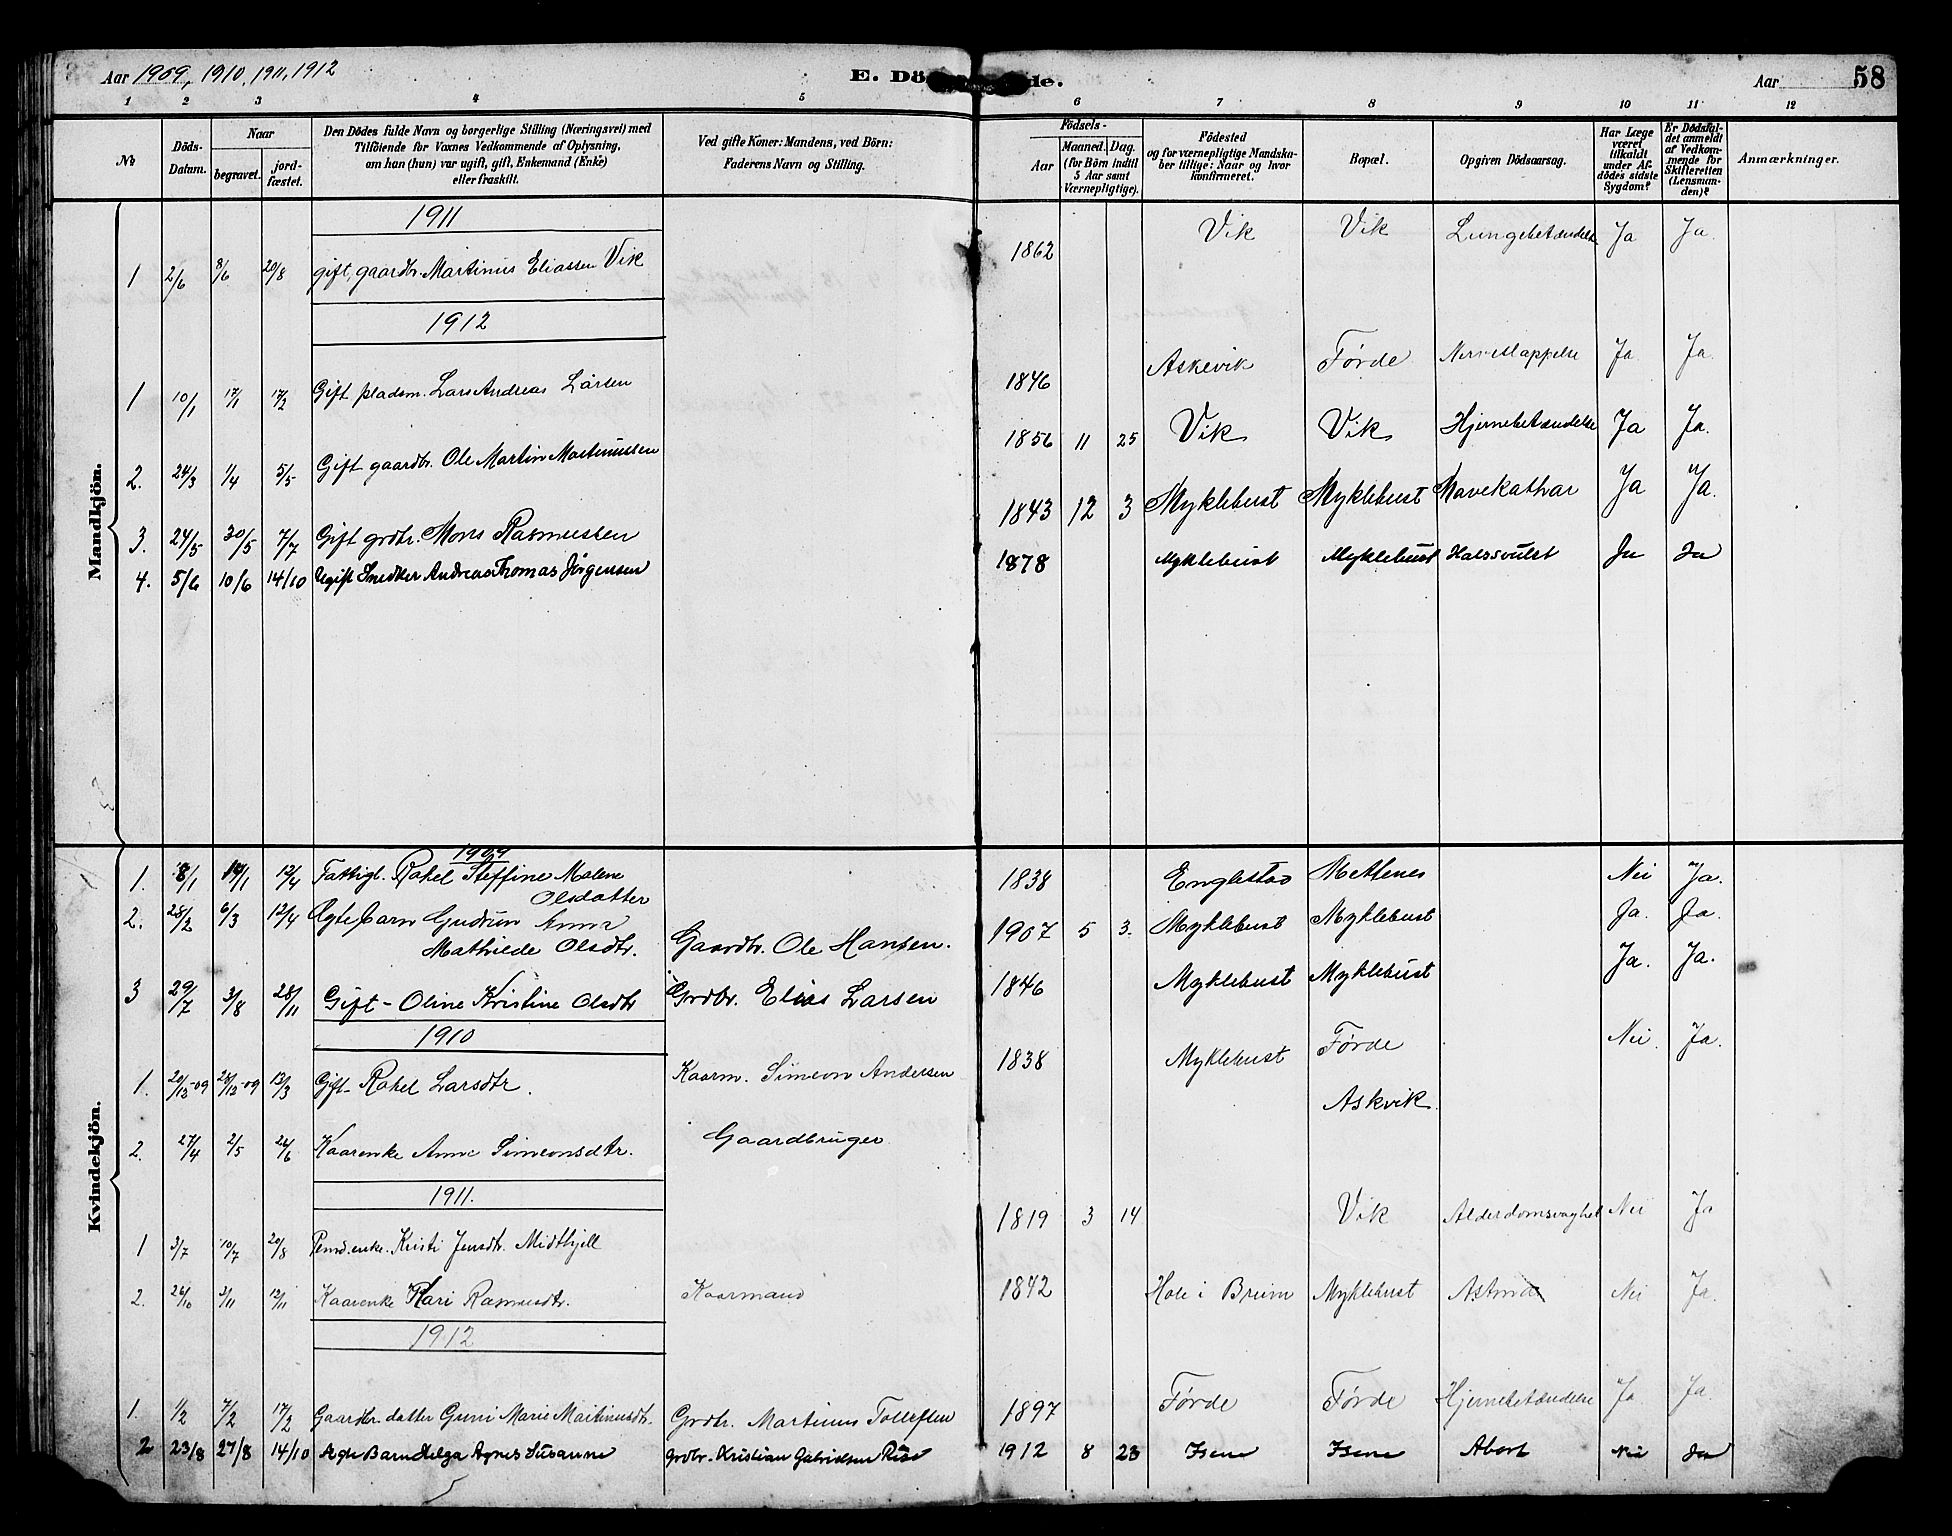 Aar 1909, 1910, 1911, 1912
E. Dö de.
Aar 58
1 2 3 4 5 6 7 8 9 10 11 12
No
Döds-Datum.
Naar
begravet.
jord-fæstet.
Den Dödes fulde Navn og borgerlige Stilling (Næringsvei) med
Tilföiende for Voxnes Vedkommende af Oplysning,
om han (hun) var ugift, gift, Enkemand (Enke)
eller fraskilt.
Ved gifte Koner: Mandens, ved Börn:
Faderens Navn og Stilling.
Födsels-
Aar
Maaned. Dag.
(for Börn indtil
5 Aar samt
Værnepligtige).
Födested
og for værnepligtige Mandska-
ber tillige: Naar og hvor
konfirmeret.
Bopæl.
Opgiven Dödsaarsag.
Har Læge
været
tilkaldt
under Af-
dödes sidste
Sygdom?
Er Dödsfal-
det anmeldt
af Vedkom-
mende for
Skifteretten
(Lensman-
den)?
Anmærkninger.
Mandkjön.
1911
1 2/6 8/6 20/8 gift, gaardbr. Martinus Eliassen Vik 1862 Vik Vik Lungebetændelse Ja Ja.
1912
1 10/1 17/1 17/2 Gift pladsm. Lars Andreas Larsen 1846 Askevik Førde Nerveslappelse Ja Ja.
2. 24/3 1/4 5/5 Gift gaardbr. Ole Martin Martinussen 1856 11 25 Vik Vik Hjernebetændelse Ja Ja.
3. 24/5 30/5 7/7 Gift grdbr. Mons Rasmussen 1843 12 3 Myklebust Myklebust Mavekathar Ja Ja.
4. 5/6 10/6 14/10 Ugift Snedker Andreas Thomas Jörgensen 1878 Myklebust Myklebust Halssvulst Ja Ja
Kvindekjön.
1909
1. 8/1 19/1 12/4 Fattigl. Rakel Steffine Malene
Olsdatter 1838 Englestad Mettenes Nei Ja.
2. 28/2 6/3 12/4 Ægte barn Gudrun Anna
Mathilde Olsdtr. Gaardbr. Ole Hansen. 1907 5 3. Myklebust Myklebust Ja. Ja.
3 29/7 3/8 28/11 Gift - Oline Kristine Olsdtr Grdbr. Elias Larsen 1846 Myklebust Myklebust Ja. Ja.
1910
1. 20/12-09 28/12-09 13/3 Gift - Rakel Larsdtr. Kaarm. Simeon Andersen 1838 Myklebust Førde Nei. Ja.
2. 27/4 2/5 26/6 Kaarenke Anne Simeonsdtr. Gaardbruger Askvik.
1911.
1 3/7 10/7 20/8 Pensd.enke. Kristi Jensdtr. Midthjell 1819 3 14 Vik Alderdomsvaghet Nei Ja
2. 26/10 3/11 12/11 Kaarenke Kari Rasmusdtr. Kaarmand 1842 Hole i Breim Myklebust Astma Nei Ja.
1912
1. 1/2 7/2 17/2 Gaardbr. datter Guni Marie Martinusdtr. Grdbr. Martinus Tollefsen 1897 Førde Førde Hjernebetændelse Ja Ja.
2 23/8 27/8 14/10 Ægte Barn Helga Agnes Susanne Grdbr. Kristian Gabrielsen Risø 1912 8 23 Isene Isene Abort Nei Ja